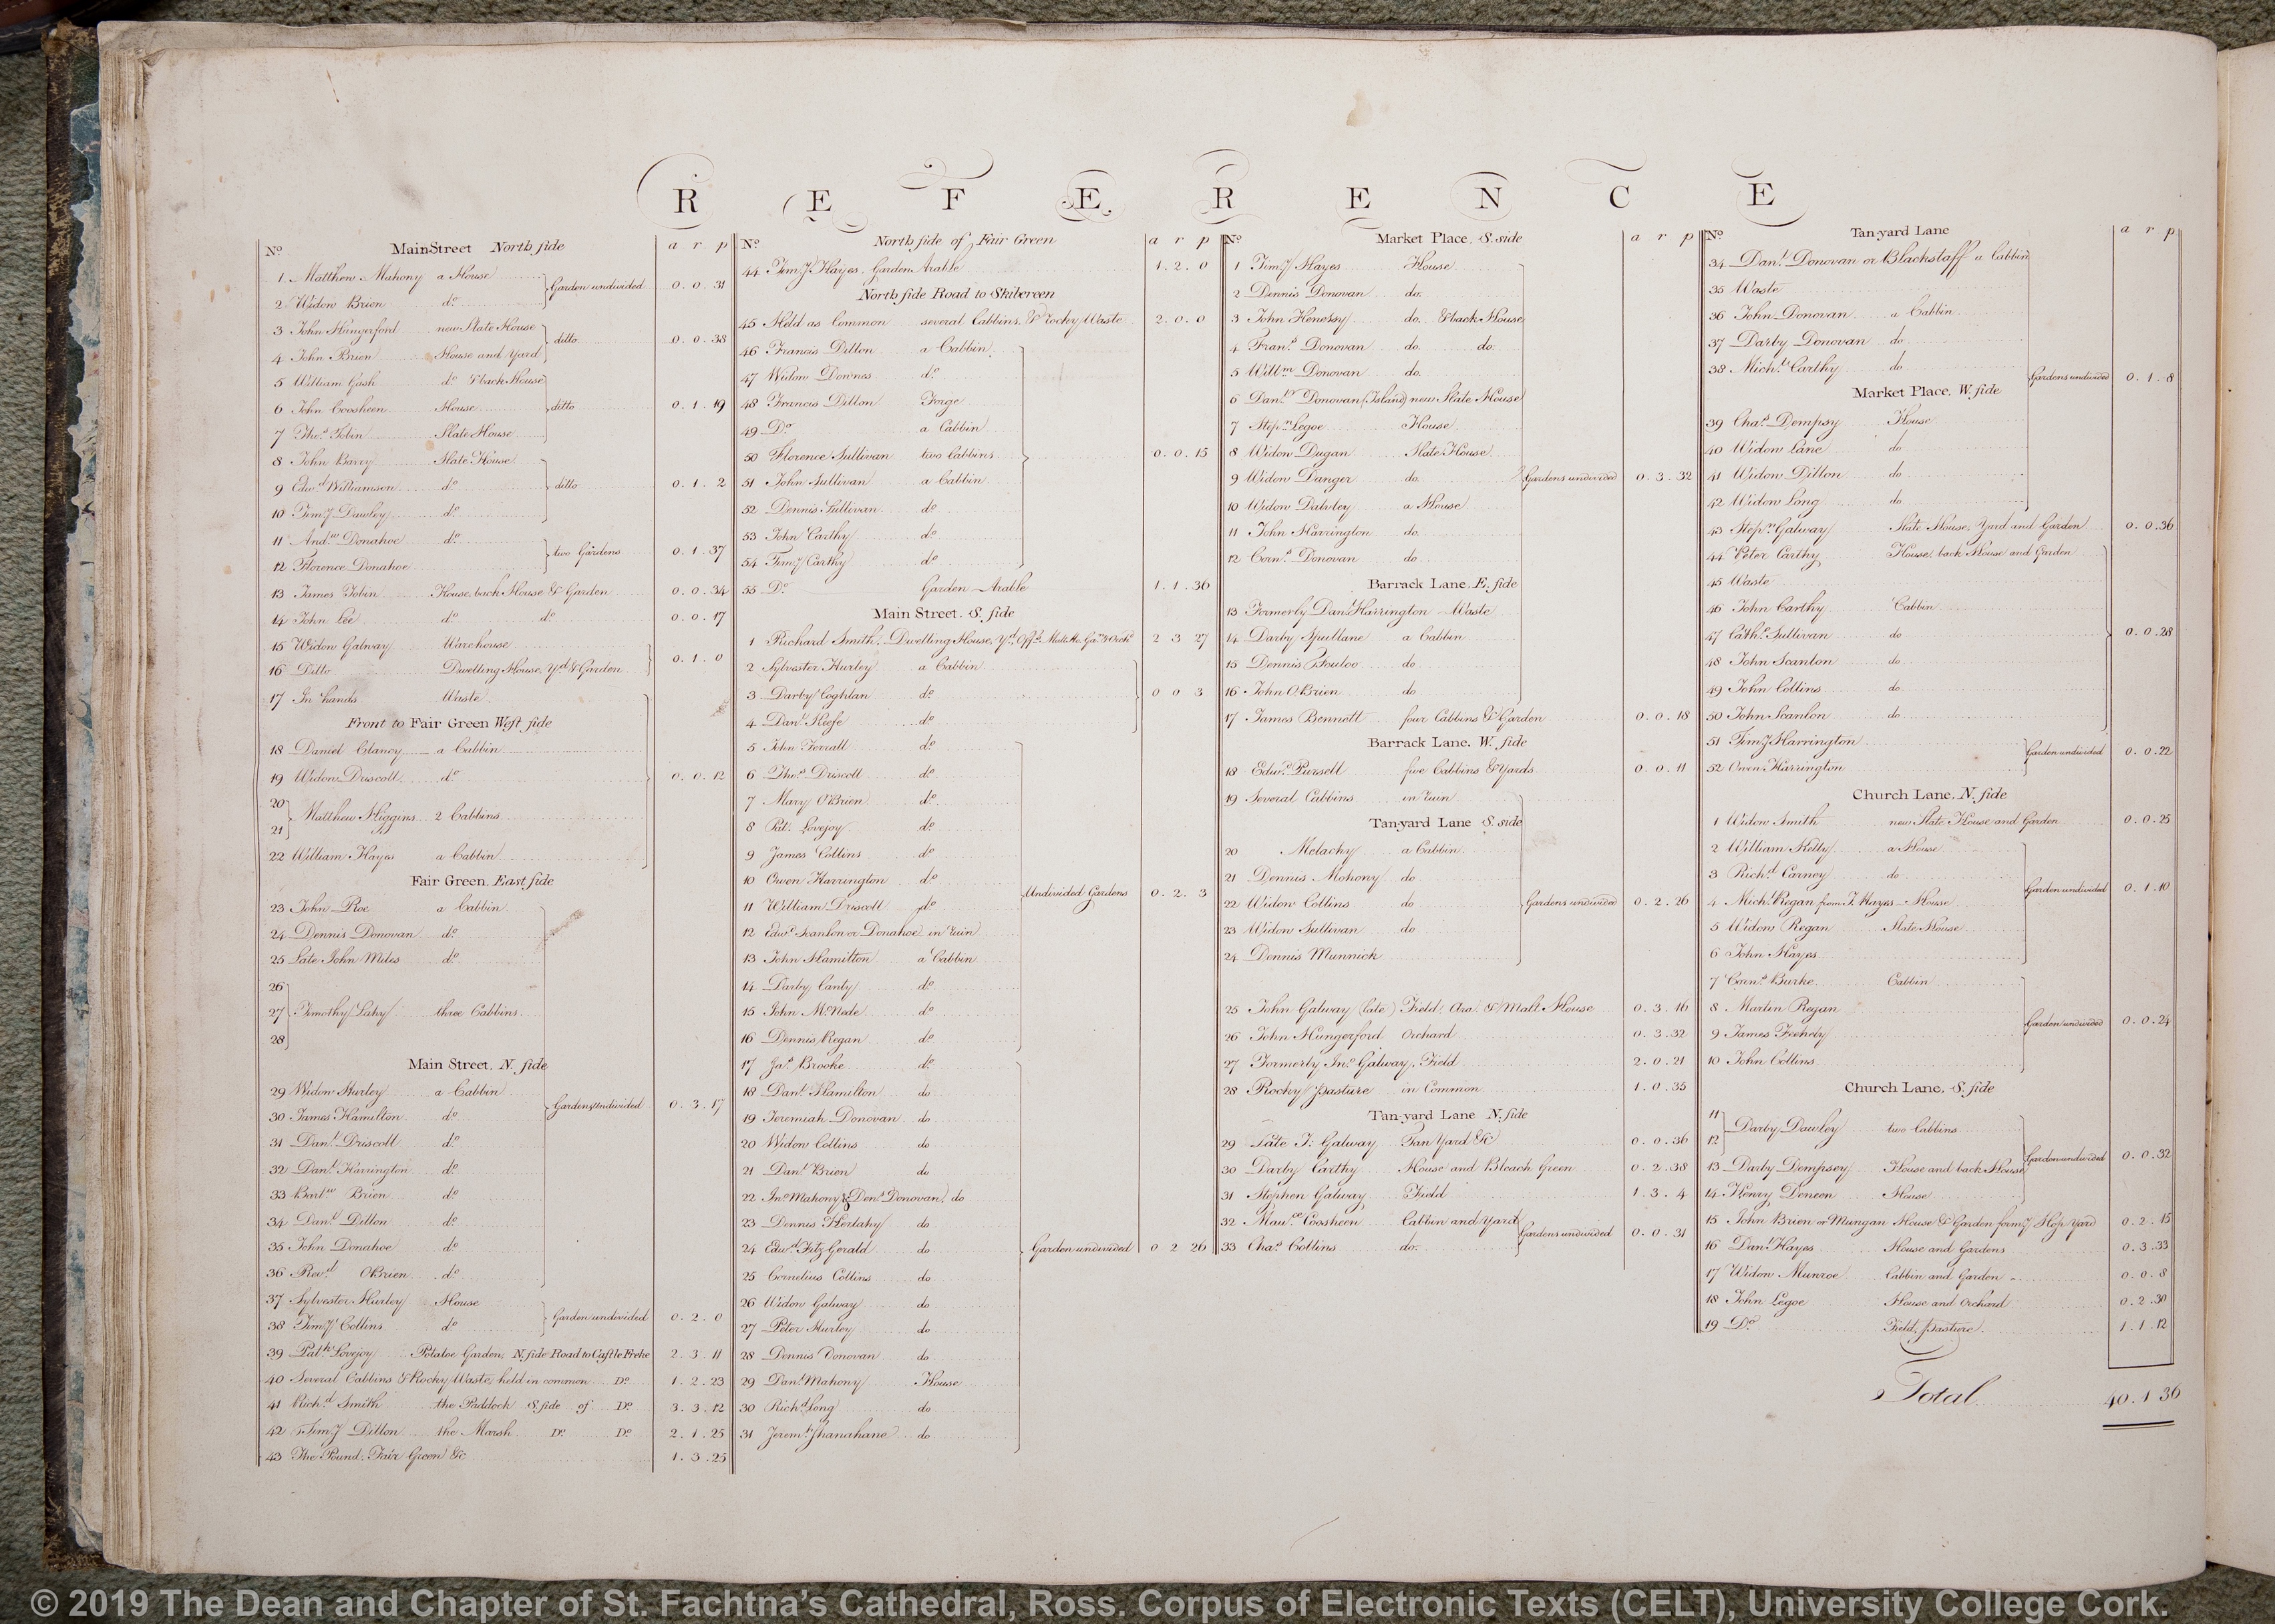 REFERENCE
No. Main Street North side a r p
1 Matthew Mahony a House
Garden undivided 0.0.31
2 Widow Brien do.
3 John Hungerford new Slate House
ditto 0.0.38
4 John Brien House and Yard
5 William Gash do. & back House
6 John Coosheen House ditto 0.1.19
7 Thos. Tobin Slate House
8 John Barry Slate House
9 Edwd. Williamson do. ditto 0.1.2
10 Timy. Dawley do.
11 Andw. Donahoe do.
two Gardens 0.1.37
12 Florence Donahoe
13 James Tobin House, back House & Garden 0.0.34
14 John Lee do. do. 0.0.17
15 Widow Galway Warehouse
0.1.0
16 Ditto Dwelling House, Yd. & Garden
17 In hands Waste
Front to Fair Green West side
18 Daniel Clancy a Cabbin
19 Widow Driscoll do. 0.0.12
20
Matthew Higgins 2 Cabbins
21
22 William Hayes a Cabbin
Fair Green. East side
23 John Roe a Cabbin
24 Dennis Donovan do.
25 Late John Miles do.
26
27 Timothy Lahy three Cabbins
28
Main Street. N. side
29 Widow Hurley a Cabbin
Gardens undivided 0.3.17
30 James Hamilton do.
31 Danl. Driscoll do.
32 Danl. Harrington do.
33 Bartw. Brien do.
34 Danl. Dillon do.
35 John Donahoe do.
36 Revd. OBrien do.
37 Sylvester Hurley House
Garden undivided 0.2.0
38 Timy. Collins do
39 Patk. Lovejoy Potatoe Garden, N. side Road to Castle Freke 2.3.11
40 Several Cabbins & Rocky Waste, held in common Do. 1.2.23
41 Richd. Smith the Paddock S. side of Do. 3.3.12
42 Timy. Dillon the Marsh Do. Do. 2.1.25
43 The Pound, Fair Green &c 1.3.25
No. North side of Fair Green a r p
44 Timy. Hayes. Garden Arable 1.2.0
North side Road to Skibereen
45 Held as Common several Cabbins, & rocky Waste 2.0.0
46 Francis Dillon a Cabbin
47 Widow Downes do.
48 Francis Dillon Forge
49 Do. a Cabbin
50 Florence Sullivan two Cabbins 0.0.15
51 John Sullivan a Cabbin
52 Dennis Sullivan do.
53 John Carthy do.
54 Timy. Carthy do.
55 Do. Garden Arable 1.1.36
Main Street. S. side
1 Richard Smith, Dwelling House, Yd., Offs. Malt Ho. Gan. & Orchd. 2 3 27
2 Sylvester Hurley a Cabbin
3 Darby Coghlan do. 0 0 3
4 Danl. Keefe do.
5 John Ferrall do.
6 Thos. Driscoll do.
7 Mary OBrien do.
8 Pat. Lovejoy do.
9 James Collins do.
10 Owen Harrington do.
Undivided Gardens 0.2.3
11 William Driscoll do.
12 Edwd. Scanlon or Donahoe in ruin
13 John Hamilton a Cabbin
14 Darby Canty do.
15 John McNede do.
16 Dennis Regan do.
17 Jas. Brooke do.
18 Danl. Hamilton do
19 Jeremiah Donovan do
20 Widow Collins do
21 Danl. Brien do
22 Jno. Mahony & Den. Donovan, do
23 Dennis Herlahy do
24 Edwd. Fitz Gerald do Garden undivided 0 2 26
25 Cornelius Collins do
26 Widow Galway do
27 Peter Hurley do
28 Dennis Donovan do
29 Danl. Mahony House
30 Richd. Long do
31 Jeremh. Shanahane do
No. Market Place. S. side a r p
1 Timy. Hayes House
2 Dennis Donovan do.
3 John Henessy do. & back House
4 Frans. Donovan do. do.
5 Willm. Donovan do.
6 Danl. Donovan (Island) new Slate House
7 Stepn. Legoe House
8 Widow Dugan Slate House
9 Widow Danger do. Gardens undivided 0.3.32
10 Widow Dawley a House
11 John Harrington do.
12 Corns. Donovan do
Barrack Lane. E. side
13 Formerly Danl. Harrington Waste
14 Darby Spullane a Cabbin
15 Dennis do
16 John OBrien do
17 James Bennett four Cabbins & Garden 0.0.18
Barrack Lane. W. side
18 Edwd. Pursell five Cabbins & Yards 0.0.11
19 Several Cabbins in ruin
Tan-yard Lane S. side
20 Melachy a Cabbin
21 Dennis Mohony do
22 Widow Collins do Gardens undivided 0.2.26
23 Widow Sullivan do
24 Dennis Munnick
25 John Galway (late) Field, Ara. & Malt House 0.3.16
26 John Hungerford Orchard 0.3.32
27 Formerly Jno. Galway, Field 2.0.21
28 Rocky Pasture in Common 1.0.35
Tan-yard Lane N. side
29 Late J: Galway Tan Yard &c 0.0.36
30 Darby Carthy House and Bleach Green 0.2.38
31 Stephen Galway Field 1.3.4
32 Mauce. Coosheen Cabbin and Yard
Gardens undivided 0.0.31
33 Chas. Collins do.
No. Tan-yard Lane a r p
34 Danl. Donovan or Blackstaff a Cabbin
35 Waste
36 John Donovan a Cabbin
37 Darby Donovan do
38 Michl. Carthy do
Gardens undivided 0.1.8
Market Place. W. side
39 Chas. Dempsy House
40 Widow Lane do
41 Widow Dillon do
42 Widow Long do
43 Stepn. Galway Slate House, Yard and Garden 0.0.36
44 Peter Carthy House, back House and Garden
45 Waste
46 John Carthy Cabbin
47 Cathe. Sullivan do 0.0.28
48 John Scanlon do
49 John Collins do
50 John Scanlon do
51 Timy. Harrington
Garden undivided 0.0.22
52 Owen Harrington
Church Lane. N. side
1 Widow Smith new Slate House and Garden 0.0.25
2 William Kelly a House
3 Richd. Carney do
Garden undivided 0.1.10
4 Michl. Regan from T. Hayes House
5 Widow Regan Slate House
6 John Hayes
7 Corns. Burke Cabbin
8 Martin Regan
Garden undivided 0.0.24
9 James Feehely
10 John Collins
Church Lane. S. side
11
Darby Dawley two Cabbins
12
Garden undivided 0.0.32
13 Darby Dempsey House and back House
14 Henry Deneen House
15 John Brien or Mungan House & Garden formy. Hop Yard 0.2.15
16 Danl. Hayes House and Gardens 0.3.33
17 Widow Munroe Cabbin and Garden 0.0.8
18 John Legoe House and Orchard 0.2.30
19 Do. Field, Pasture. 1.1.12
Total 40.1.36
© 2019 The Dean and Chapter of St. Fachtna’s Cathedral, Ross. Corpus of Electronic Texts (CELT), University College Cork.